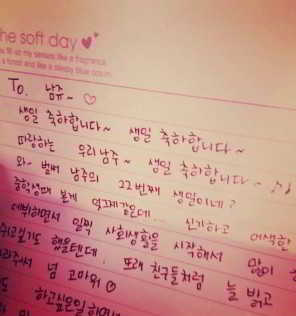 he soft day
fill up my senses like a fragrance
a forest and like a sleepy blue ocean
To. 남쥬~ ♡
생일 축하합니다~ 생일 축하합니다~
따랑하는 우리남쥬~ 생일 축하합니다~ ♪
와~ 벌써 남주의 22번째 생일이네?
중학생때 본게 엊그제같은데... 신기하고 어색한
데뷔하면서 일찍 사회생활을 시작해서 많이
했을텐데. 또래 친구들처럼 늘 밝고
줘서 넘 고마워
하고싶은일